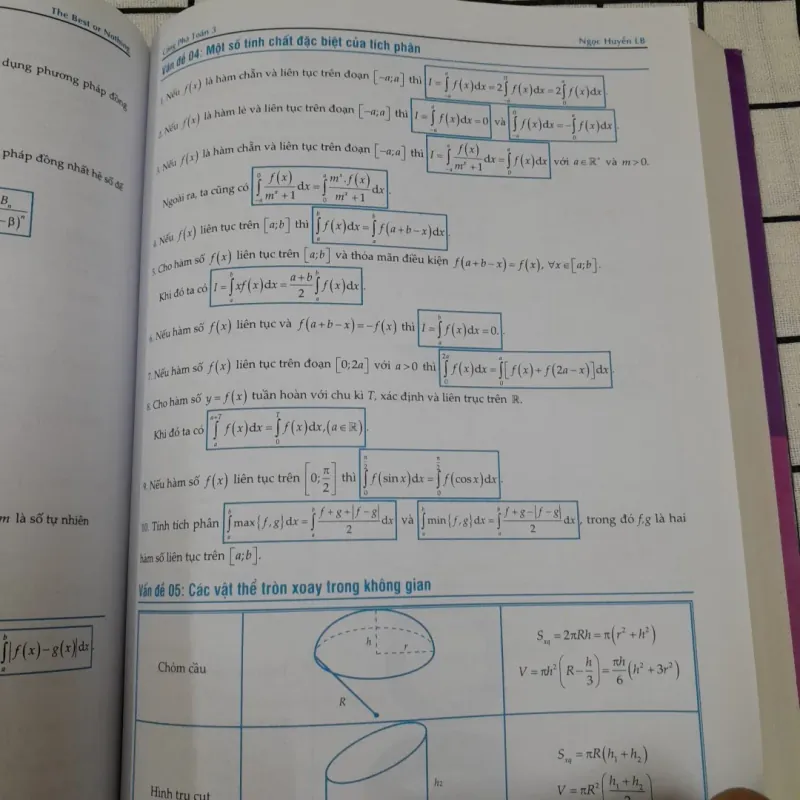 The Best or Nothing
dụng phương pháp đồng
pháp đồng nhất hệ số để
Bₙ
-β)ⁿ
m là số tự nhiên
∫ₐᵇ|f(x)-g(x)|dx
Công Phá Toán 3
Ngọc Huyền LB
Vấn đề 04: Một số tính chất đặc biệt của tích phân
1. Nếu f(x) là hàm chẵn và liên tục trên đoạn [-a;a] thì
2. Nếu f(x) là hàm lẻ và liên tục trên đoạn [-a;a] thì I = ∫₋ₐᵃ f(x)dx = 0 và ∫₋ₐ⁰ f(x)dx = -∫₀ᵃ f(x)dx.
3. Nếu f(x) là hàm chẵn và liên tục trên đoạn [-a;a] thì I = ∫₋ₐᵃ f(x)/(mˣ+1) dx = ∫₀ᵃ f(x)dx với a∈ℝ⁺ và m>0.
Ngoài ra, ta cũng có ∫₋ₐ⁰ f(x)/(mˣ+1) dx = ∫₀ᵃ mˣ.f(x)/(mˣ+1) dx.
4. Nếu f(x) liên tục trên [a;b] thì ∫ₐᵇ f(x)dx = ∫ₐᵇ f(a+b-x)dx.
5. Cho hàm số f(x) liên tục trên [a;b] và thỏa mãn điều kiện f(a+b-x)=f(x), ∀x∈[a;b].
Khi đó ta có I = ∫ₐᵇ xf(x)dx = (a+b)/2 ∫ₐᵇ f(x)dx.
6. Nếu hàm số f(x) liên tục và f(a+b-x)=-f(x) thì I = ∫ₐᵇ f(x)dx = 0.
7. Nếu hàm số f(x) liên tục trên đoạn [0;2a] với a>0 thì ∫₀²ᵃ f(x)dx = ∫₀ᵃ [f(x)+f(2a-x)]dx.
8. Cho hàm số y=f(x) tuần hoàn với chu kì T, xác định và liên trục trên ℝ.
Khi đó ta có ∫ₐᵃ⁺ᵀ f(x)dx = ∫₀ᵀ f(x)dx,(a∈ℝ)
9. Nếu hàm số f(x) liên tục trên [0;π/2] thì ∫₀^(π/2) f(sinx)dx = ∫₀^(π/2) f(cosx)dx.
10. Tính tích phân ∫ₐᵇ max{f,g}dx = ∫ₐᵇ (f+g+|f-g|)/2 dx và ∫ₐᵇ min{f,g}dx = ∫ₐᵇ (f+g-|f-g|)/2 dx, trong đó f,g là hai
hàm số liên tục trên [a;b].
Vấn đề 05: Các vật thể tròn xoay trong không gian
Chỏm cầu
h
r
R
S_xq = 2πRh = π(r²+h²)
V = πh²(R-h/3) = πh/6 (h²+3r²)
Hình trụ cụt
h₂
S_xq = πR(h₁+h₂)
V = πR²(h₁+h₂